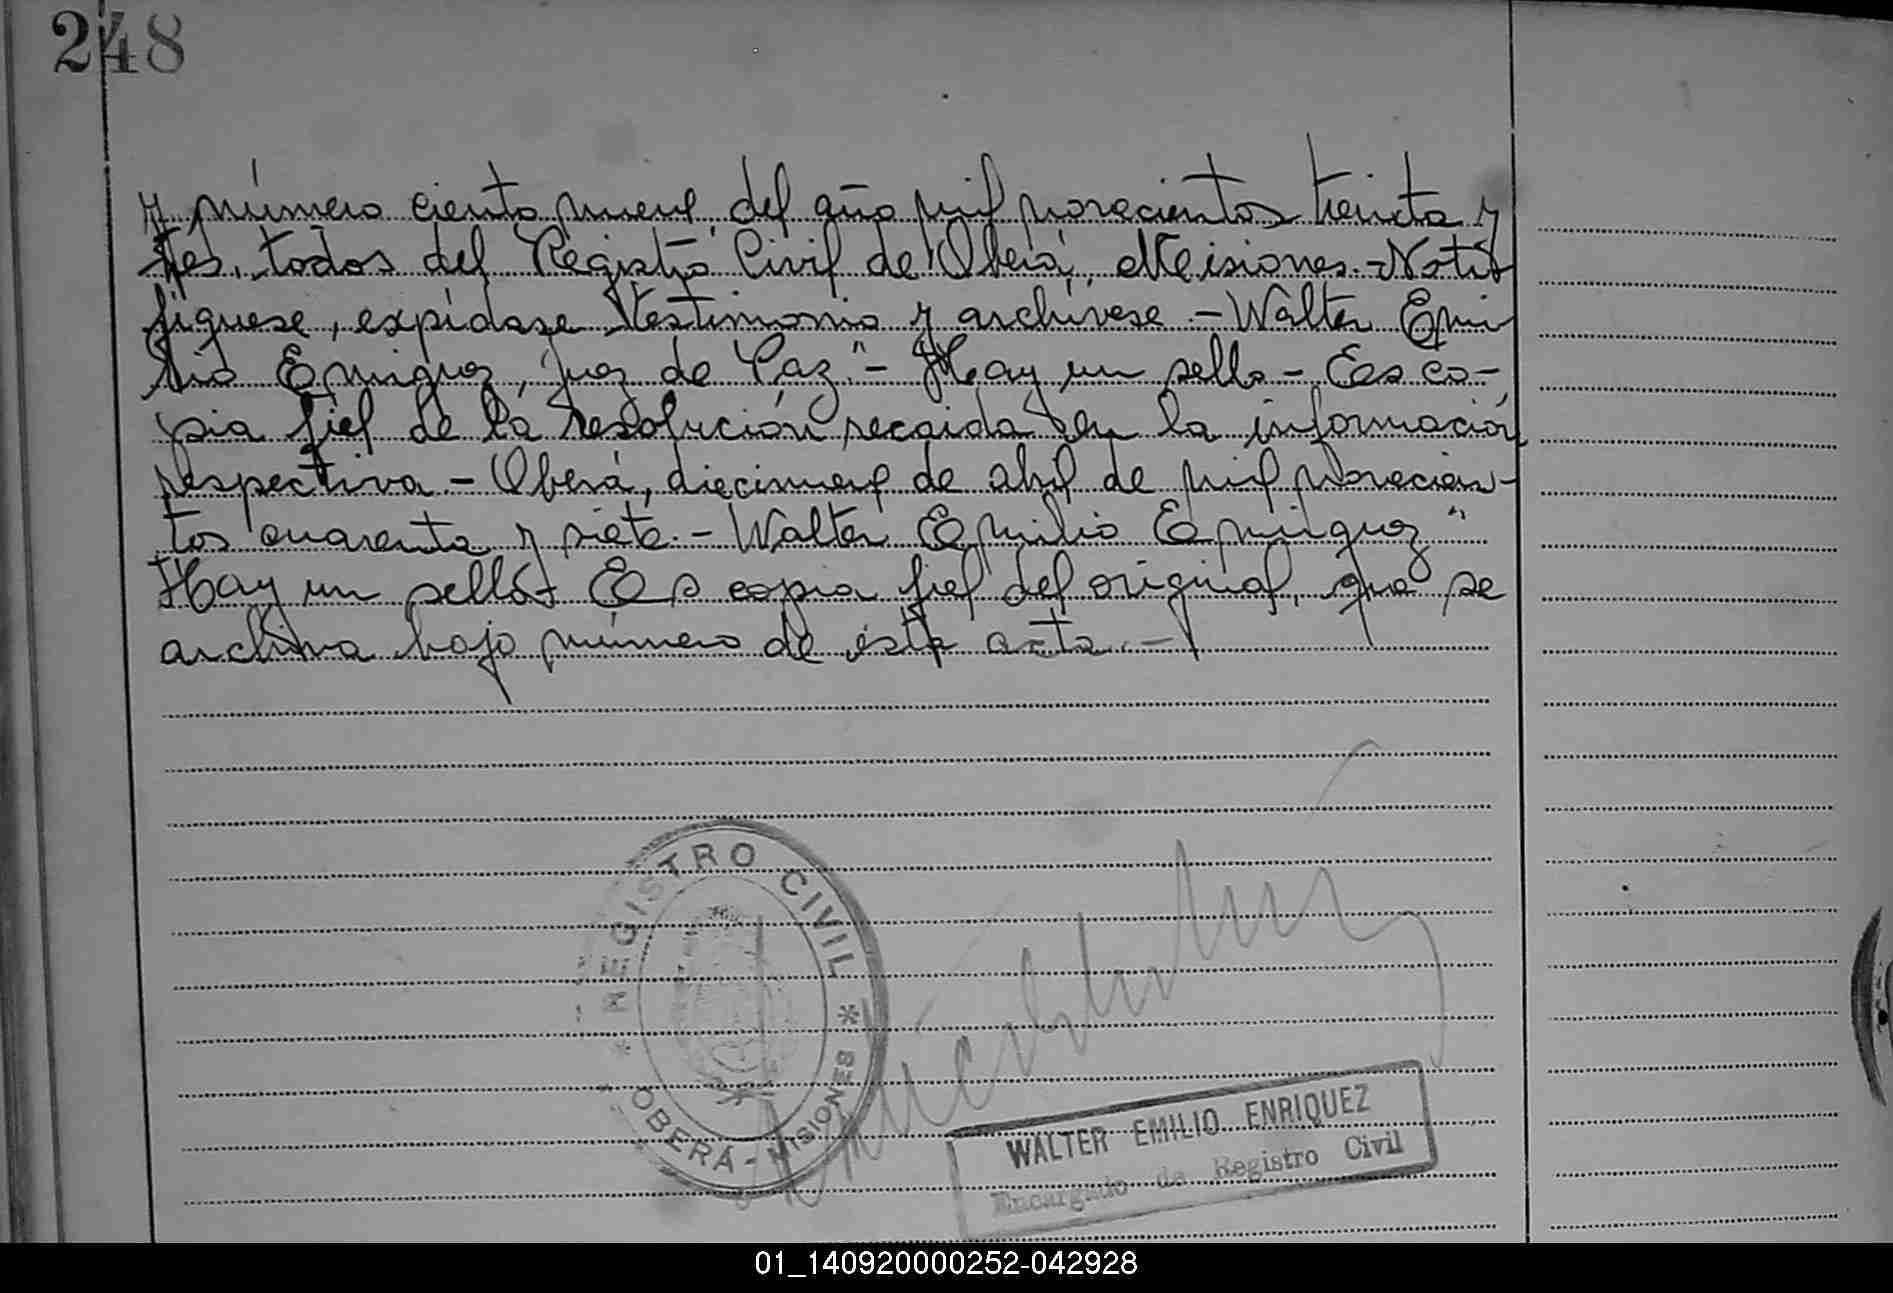 248
y número ciento nueve del año mil novecientos treinta y
tres, todos del Registro Civil de Oberá, Misiones.- Noti
fíquese, expídase testimonio y archívese.- Walter Emi
lio Enriquez, Juez de Paz".- Hay un sello.- Es co-
pia fiel de la resolución recaída en la información
respectiva.- Oberá, diecinueve de abril de mil novecien-
tos cuarenta y siete.- Walter Emilio Enriquez"
Hay un sello.- Es copia fiel del original, que se
archiva bajo número de ésta acta.-
REGISTRO CIVIL
* OBERÁ - MISIONES *
WALTER EMILIO ENRIQUEZ
Encargado de Registro Civil
01_140920000252-042928